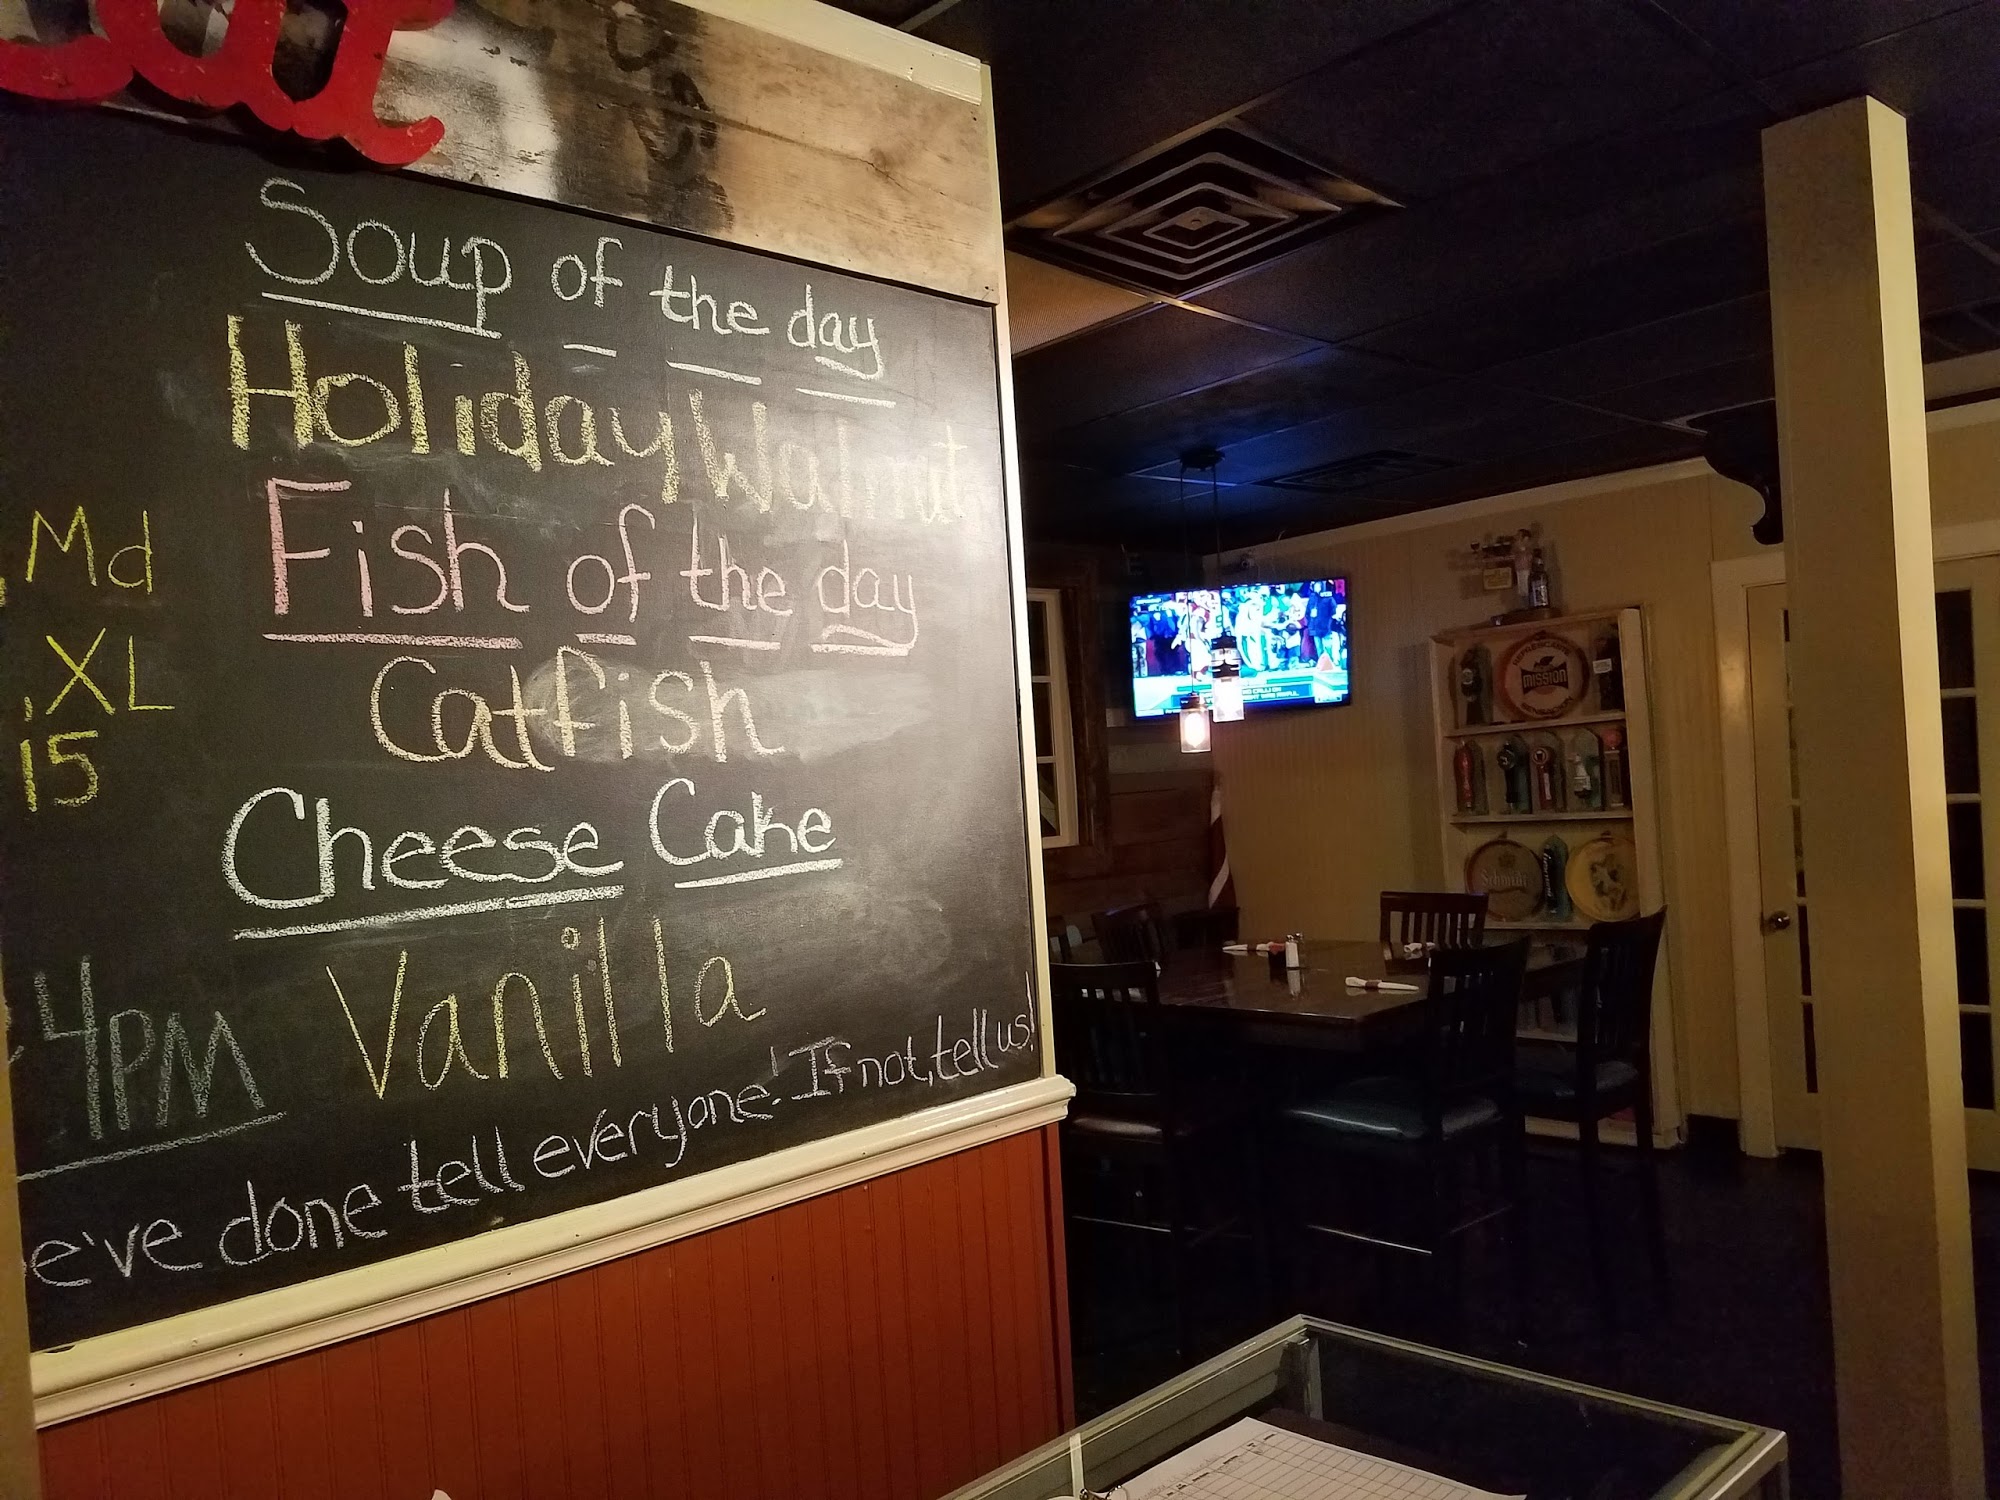 Soup of the day
Holiday Walnut
Fish of the day
Catfish
Cheese Cake
Vanilla
Md
XL
15
4PM
e've done tell everyone! If not, tell us!
MISSION
Schmidt